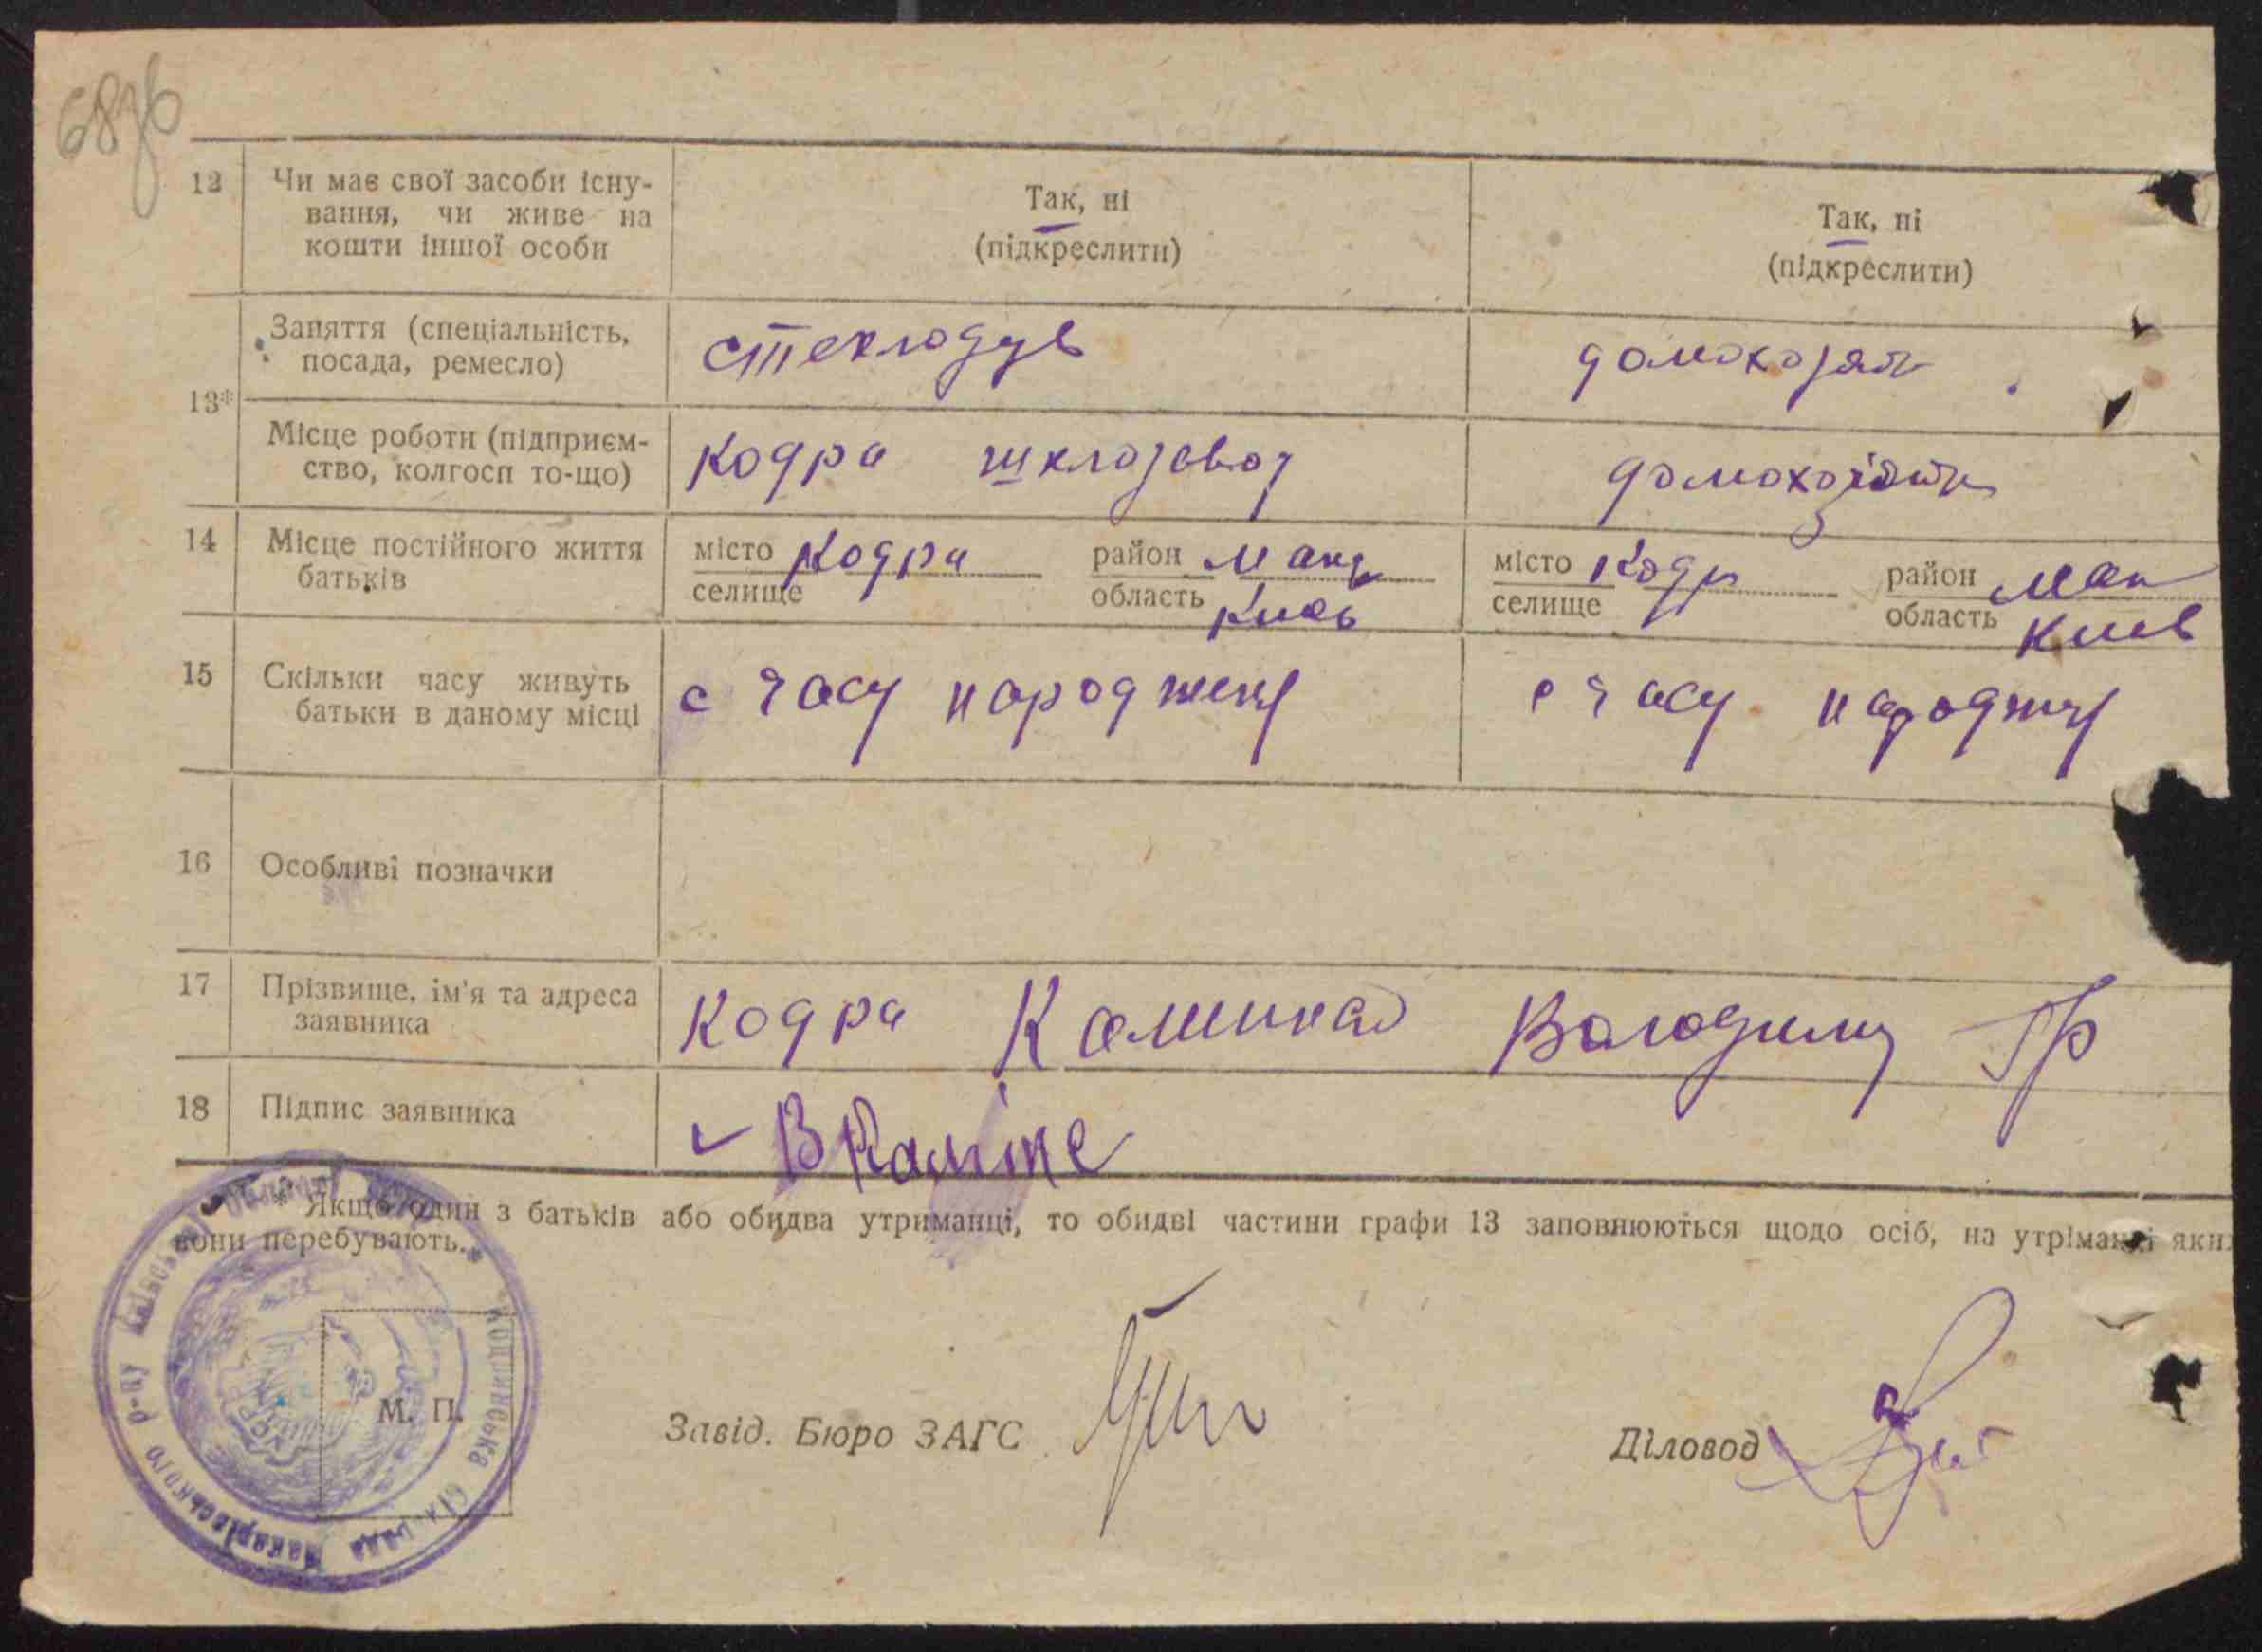 68зв
12 Чи має свої засоби існу-
вання, чи живе на
кошти іншої особи
Так, ні
(підкреслити)
Так, ні
(підкреслити)
13*
Заняття (спеціальність,
посада, ремесло)
стеклодув
Місце роботи (підприєм-
ство, колгосп то-що)
Кодра шклозавод
14 Місце постійного життя
батьків
місто Кодра район Мак
селище область Киев
місто Кодр район Мак
селище область Киев
15 Скільки часу живуть
батьки в даному місці
с часу народжен
с часу народж
16 Особливі позначки
17 Прізвище, ім'я та адреса
заявника
Кодра Володимир Гр
18 Підпис заявника
* Якщо один з батьків або обидва утриманці, то обидві частини графи 13 заповнюються щодо осіб, на утріманні яких
вони перебувають.
М. П.
Завід. Бюро ЗАГС
Діловод
Кодрянська сільрада Макарівського р-ну Київської області